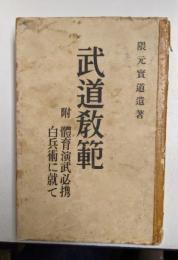 隈元實道遺著
武道教範
附 體育演武必携
白兵術に就て